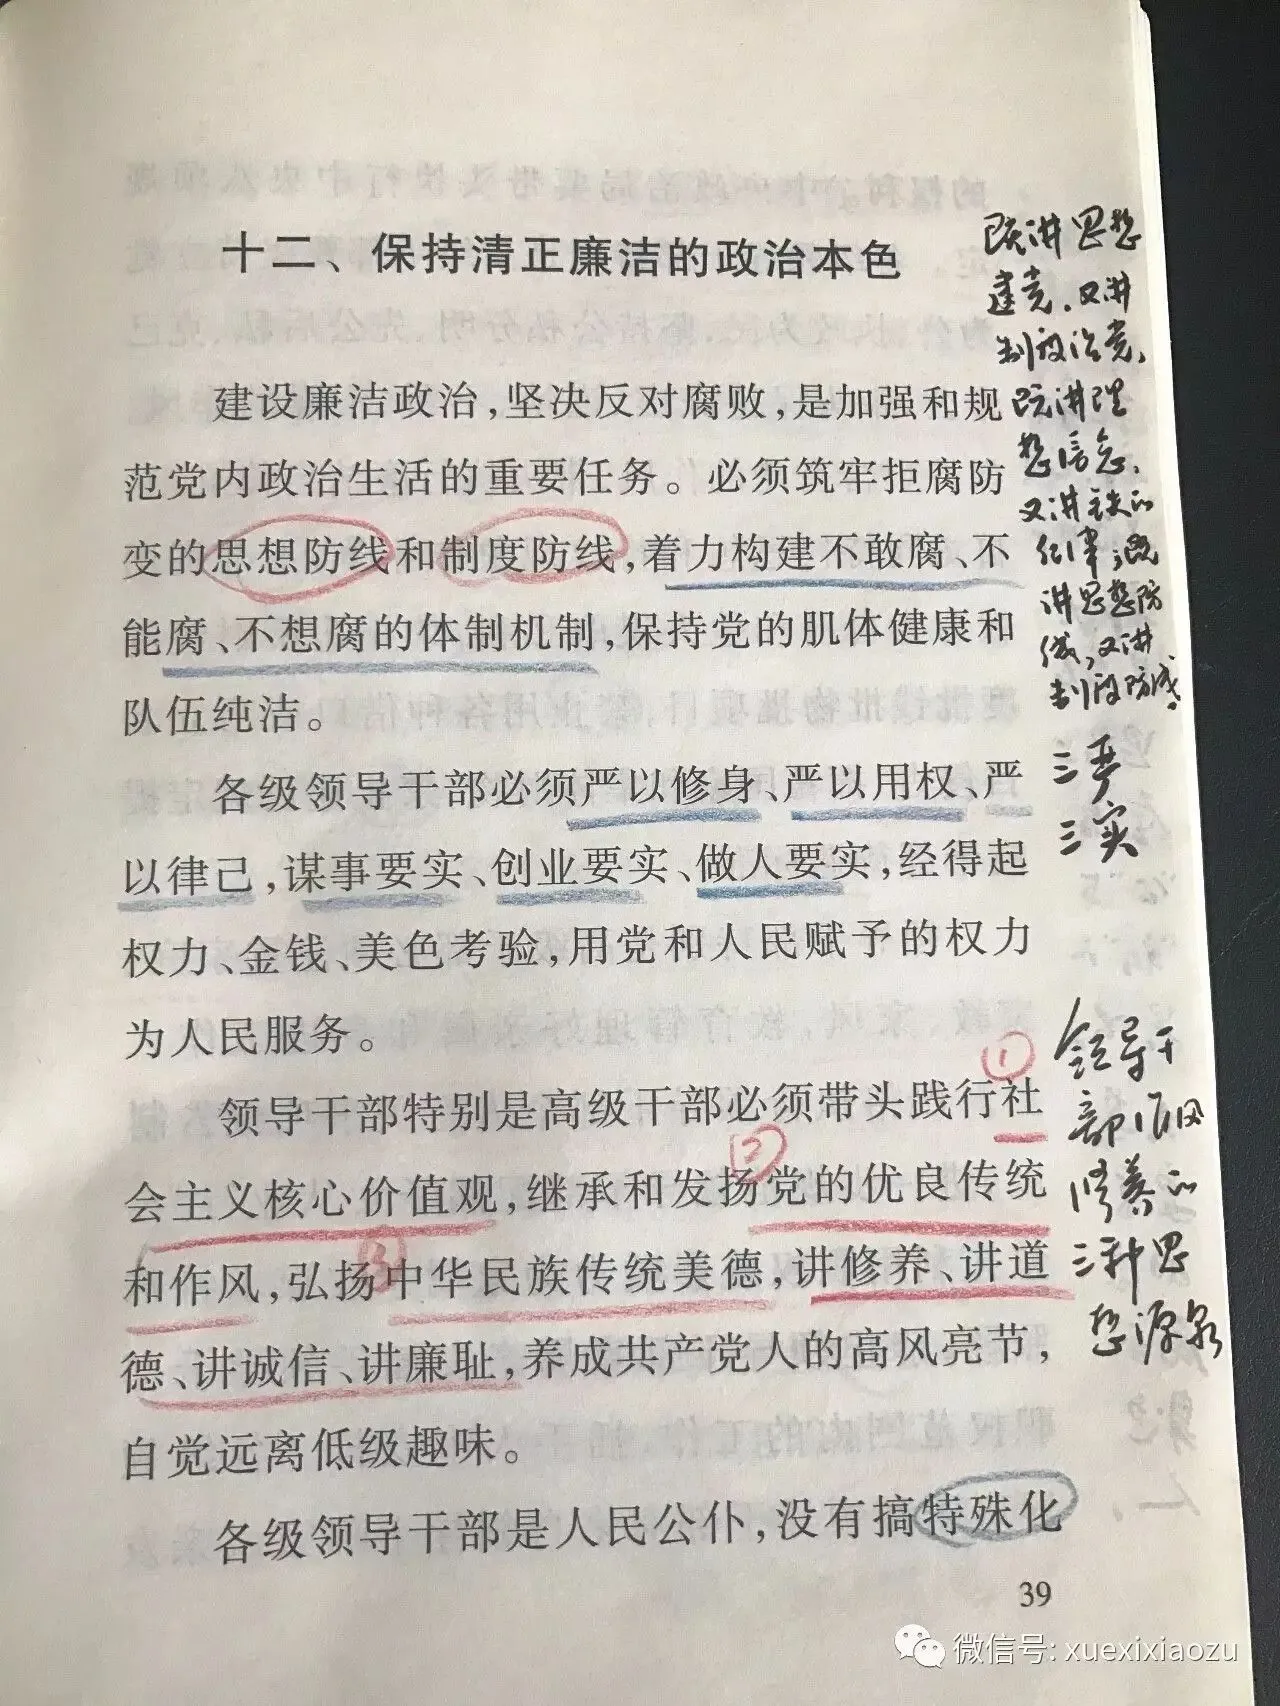 十二、保持清正廉洁的政治本色
建设廉洁政治,坚决反对腐败,是加强和规
范党内政治生活的重要任务。必须筑牢拒腐防
变的思想防线和制度防线,着力构建不敢腐、不
能腐、不想腐的体制机制,保持党的肌体健康和
队伍纯洁。
各级领导干部必须严以修身、严以用权、严
以律己,谋事要实、创业要实、做人要实,经得起
权力、金钱、美色考验,用党和人民赋予的权力
为人民服务。
①
领导干部特别是高级干部必须带头践行社
②
会主义核心价值观,继承和发扬党的优良传统
③
和作风,弘扬中华民族传统美德,讲修养、讲道
德、讲诚信、讲廉耻,养成共产党人的高风亮节,
自觉远离低级趣味。
各级领导干部是人民公仆,没有搞特殊化
39
既讲思想
建党,又讲
制度治党,
既讲理
想信念,
又讲铁的
纪律,既
讲思想防
线,又讲
制度防线。
三严
三实
领导干
部作风
修养的
三种思
想源泉
微信号: xuexixiaozu